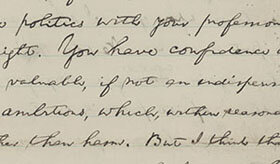 politics with your profession
ight. You have confidence
valuable, if not an indispens
ambitions, which, within reasona
than harm. But I think th